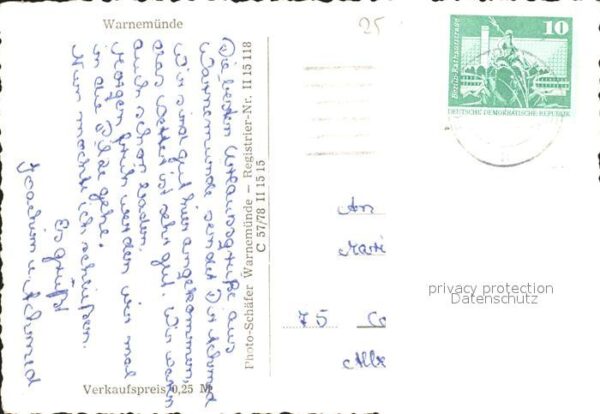 Warnemünde
25
Die besten Urlaubsgrüße aus
Warnemünde sendet Dir Achmed
Wir sind gut hier angekommen,
das Wetter ist sehr gut. Wir waren
auch schon baden.
Morgen früh werden wir mal
in die gehe.
Nun möchte ich schließen.
Es grüßt
Joachim u. Achmed
Verkaufspreis 0,25 M
Photo-Schäfer Warnemünde — Registrier-Nr. II 15 118
C 57/78 II 15 15
10
Berlin-Rathausstraße
DEUTSCHE DEMOKRATISCHE REPUBLIK
An
75
privacy protection
Datenschutz